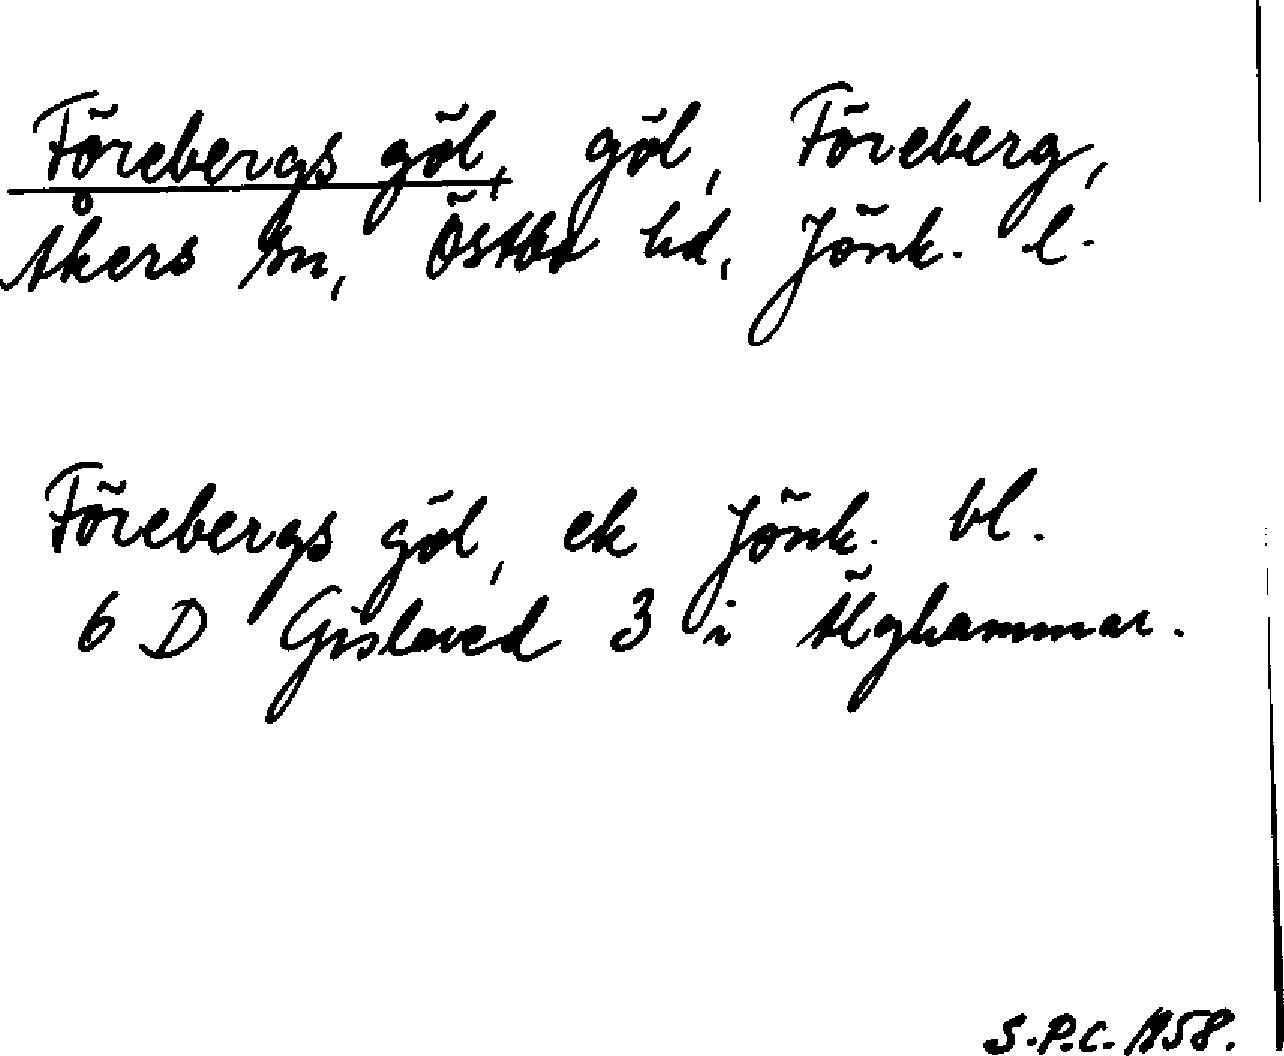 Förebergs göl, göl, Föreberg,
Åkers sn, Östbo hd, Jönk. l.
Förebergs göl, ek Jönk. bl.
6 D Gislaved 3 i Älghammar.
S.P.C. 1958.